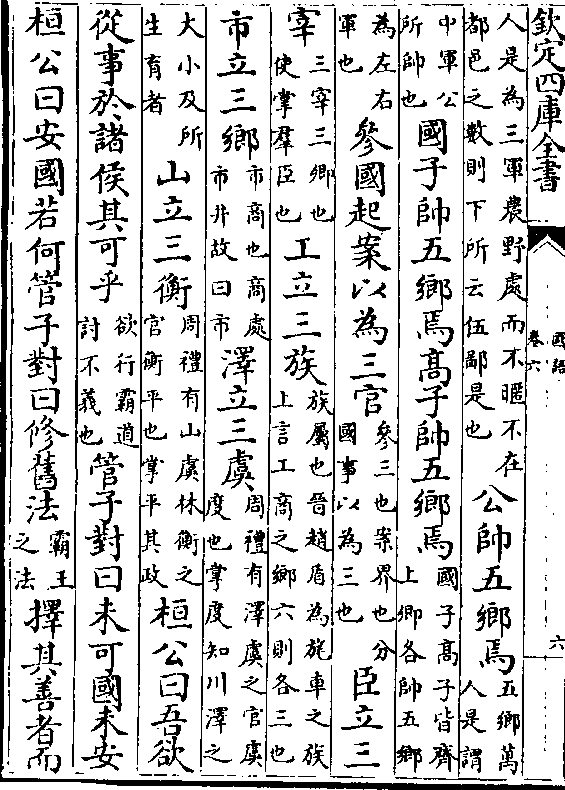 欽定四庫全書
國語
卷六
六
人是為三軍農野處而不暱不在都邑之數則下所云伍鄙是也公帥五鄉焉五鄉萬人是謂
中軍公所帥也國子帥五鄉焉髙子帥五鄉焉國子髙子皆齊上卿各帥五鄉
為左右軍也參國起案以為三官參三也案界也分國事以為三也臣立三
宰三宰三卿也使掌羣臣也工立三族族屬也晉趙盾為旄車之族上言工商之鄉六則各三也
市立三鄉市商也商處市井故曰市澤立三虞周禮有澤虞之官虞度也掌度知川澤之
大小及所生育者山立三衡周禮有山虞林衡之官衡平也掌平其政桓公曰吾欲
從事於諸侯其可乎欲行霸道討不義也管子對曰未可國未安
桓公曰安國若何管子對曰修舊法霸王之法擇其善者而